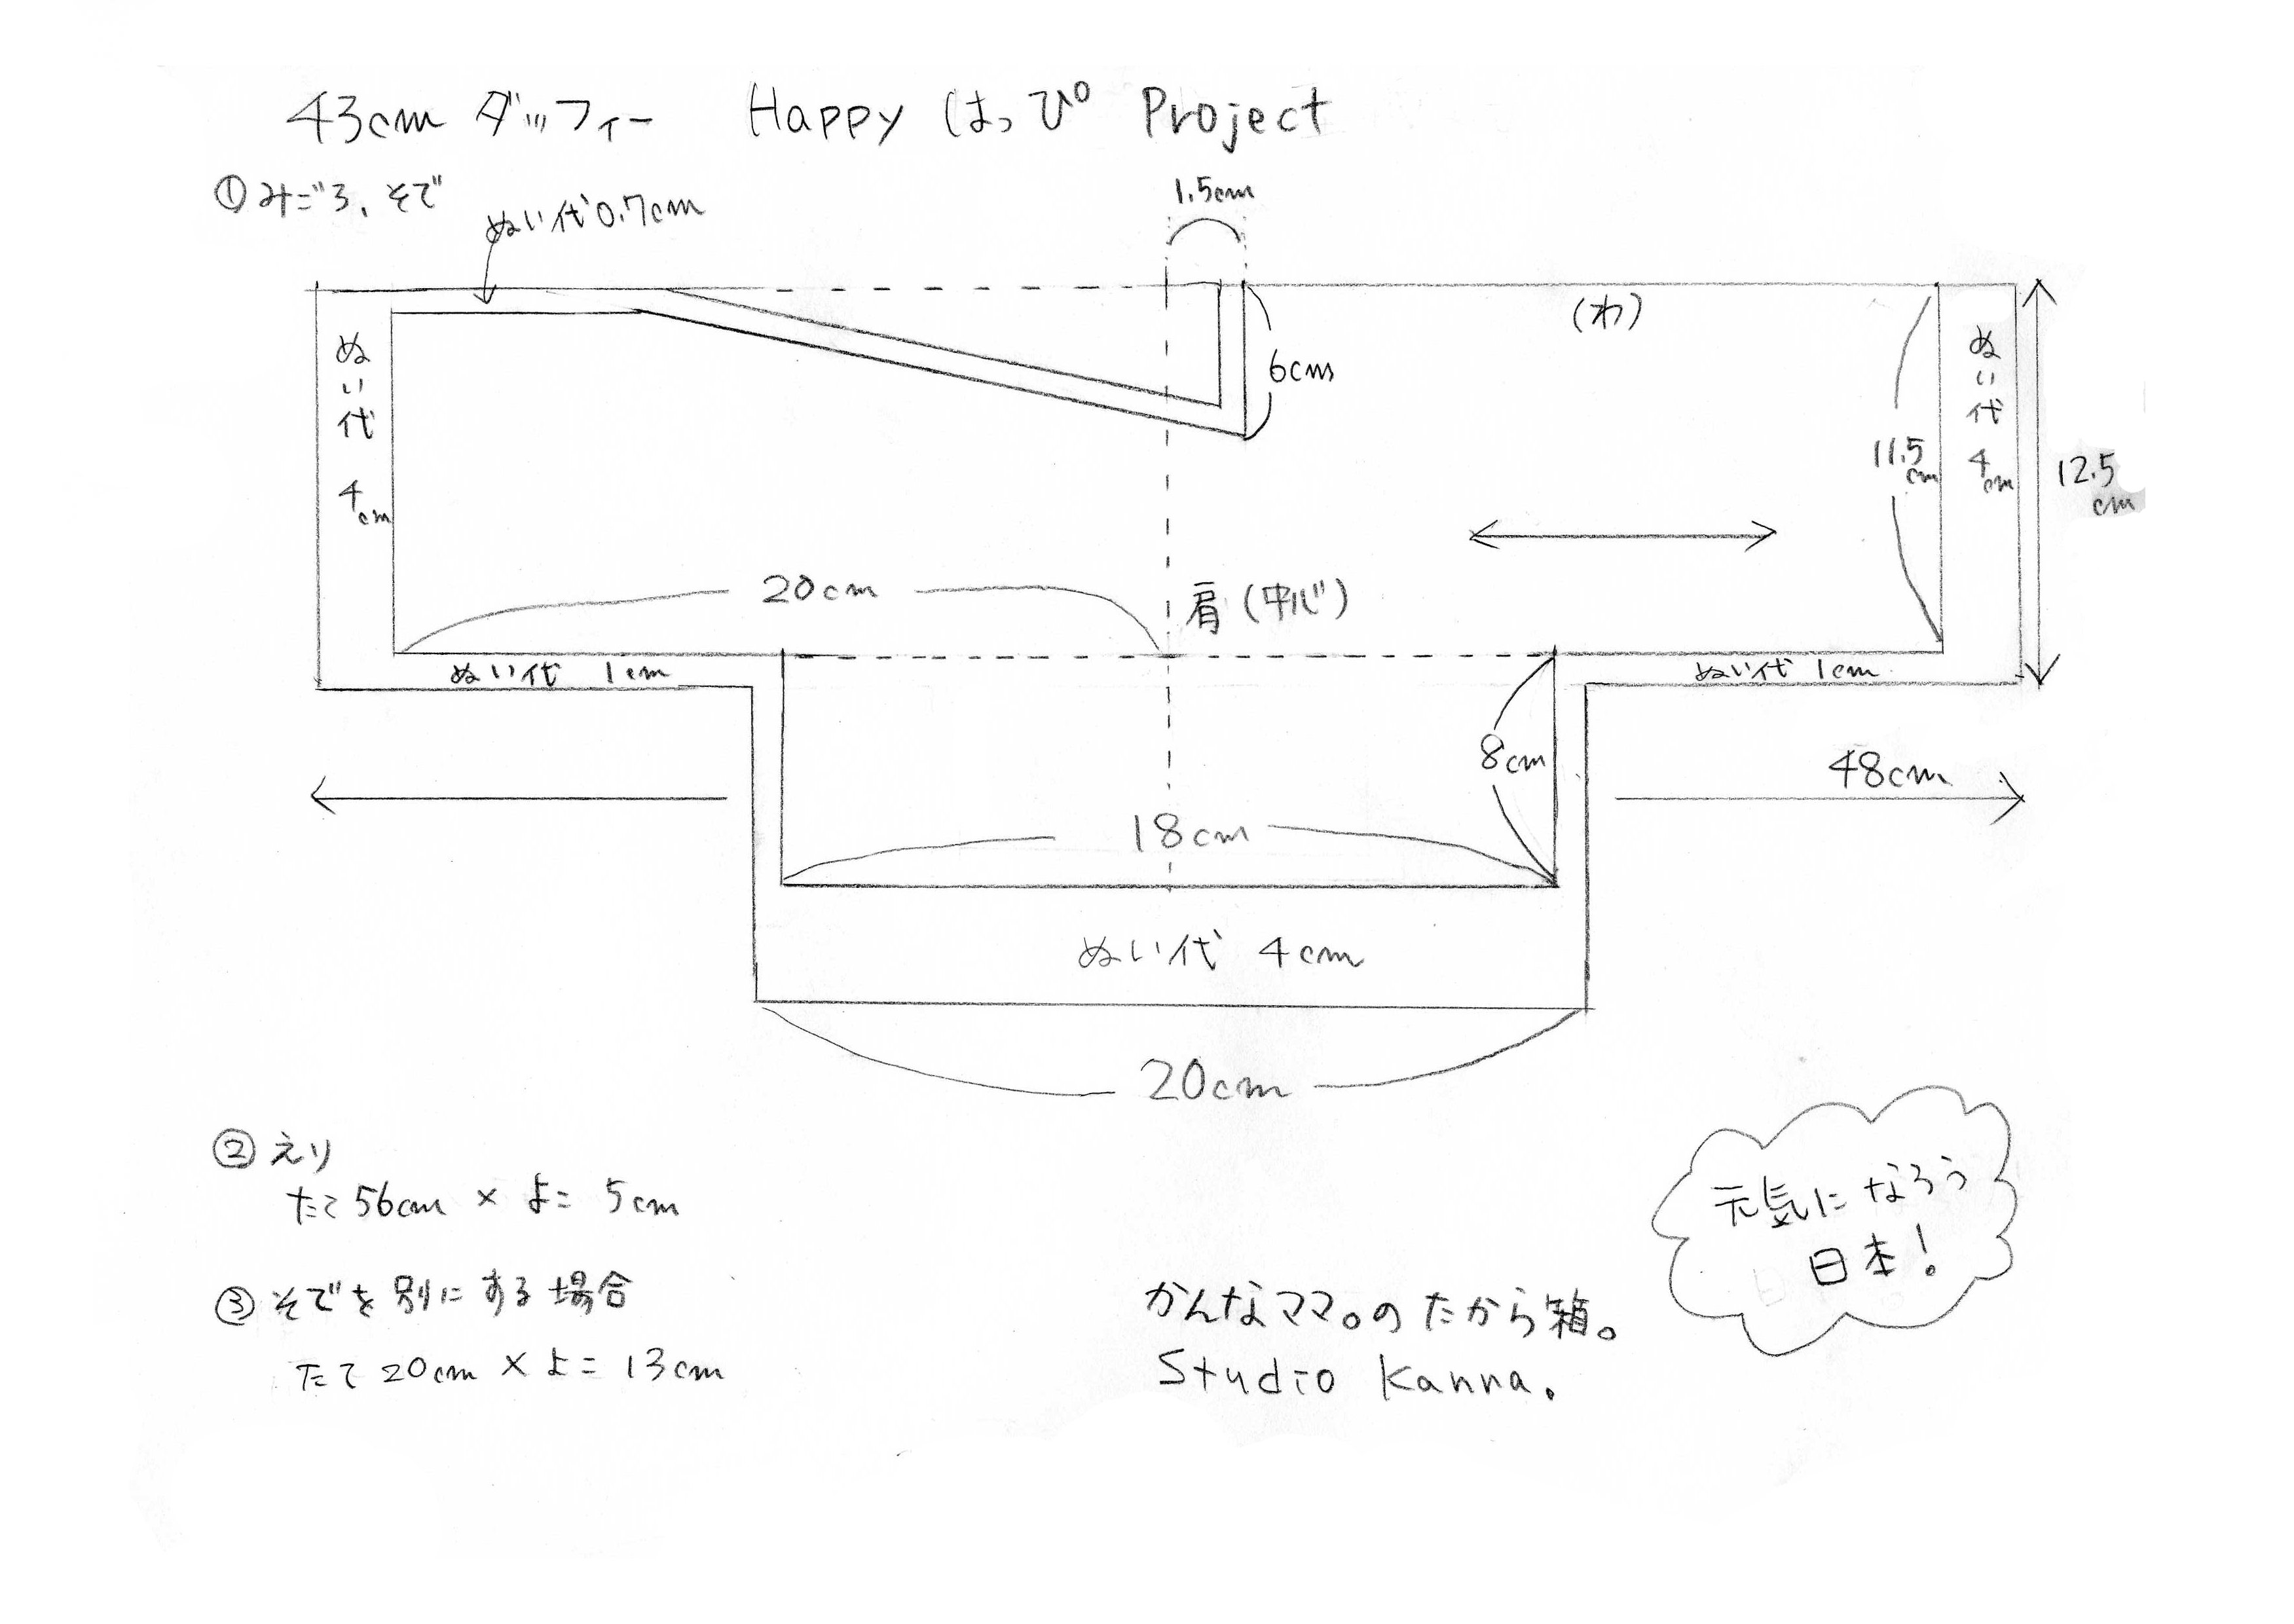 43cm ダッフィー Happy はっぴ Project
①みごろ、そで
ぬい代0.7cm
1.5cm
(わ)
ぬい代 4cm
6cm
11.5cm
ぬい代 4cm
12.5cm
20cm
肩(中心)
ぬい代 1cm
ぬい代 1cm
8cm
48cm
18cm
ぬい代 4cm
20cm
②えり
たて56cm × よこ 5cm
③そでを別にする場合
たて20cm × よこ 13cm
元気になろう
日本!
かんなママ。のたから箱。
Studio Kanna.